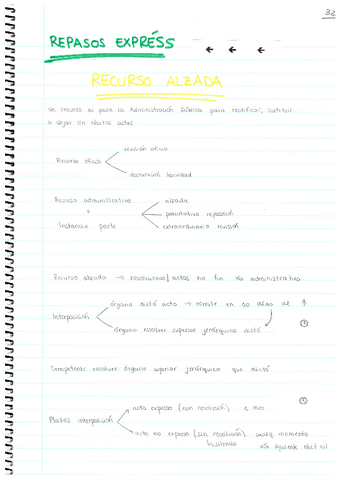 32
REPASOS EXPRÉSS
RECURSO ALZADA
Un recurso es para la Administración Pública para rectificar, sustituir
o dejar sin efectos actos.
revisión oficio
Recurso oficio
declaración lesividad
Recurso administrativo
alzada
=
potestativo reposición
Instancia parte
extraordinario revisión
Recurso alzada → resoluciones/actos no fin vía administrativa
órgano dictó acto → remite en 10 días al ↑
Interposición
órgano resolver superior jerárquico dictó
Competente resolver órgano superior jerárquico que dictó
acto expreso (con resolución) 1 mes
Plazos interposición
acto no expreso (sin resolución) cualq momento
silencio día siguiente efect sil